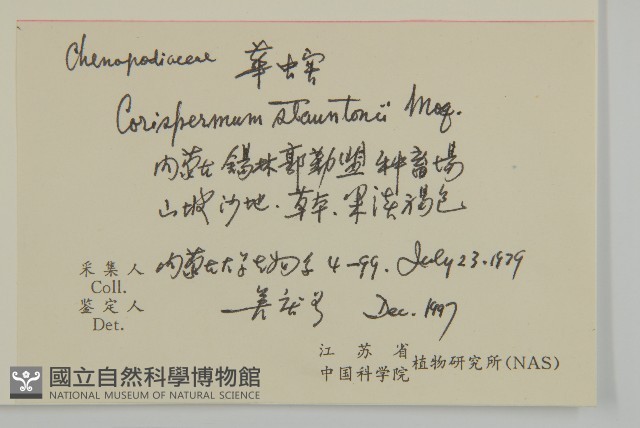 Chenopodiaceae 華虫実
Corispermum stauntonii Moq.
内蒙古 锡林郭勒盟 种畜場
山坡沙地.草本.果淡褐色
采集人 内蒙古大学生物系 4-99. July 23.1979
Coll.
鉴定人 Dec.1997
Det.
江苏省
中国科学院 植物研究所(NAS)
國立自然科學博物館
NATIONAL MUSEUM OF NATURAL SCIENCE